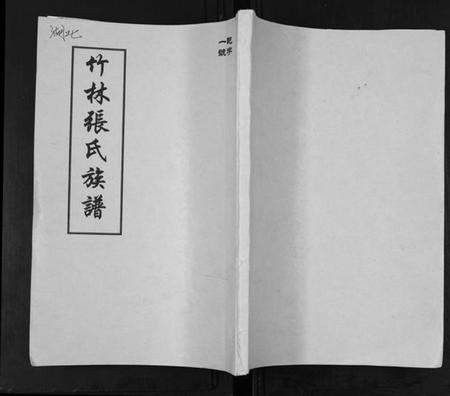 湖北
竹林張氏族譜
一號